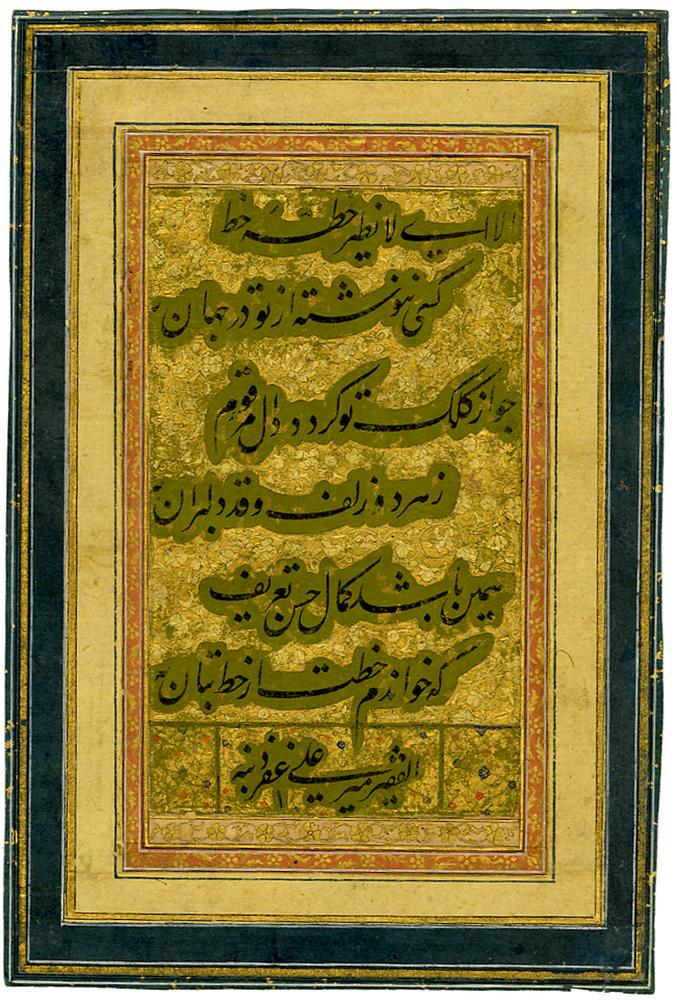 الا ای لا نظیر خطهٔ خط
کسی ننوشته از تو در جهان به
چو از کلک تو گردد دال مرقوم
ز هر دو زلف و قد دلبران به
همین باشد کمال حسن تعریف
که خواندم خطت از خط بتان به
الفقیر میر علی غفر ذنبه